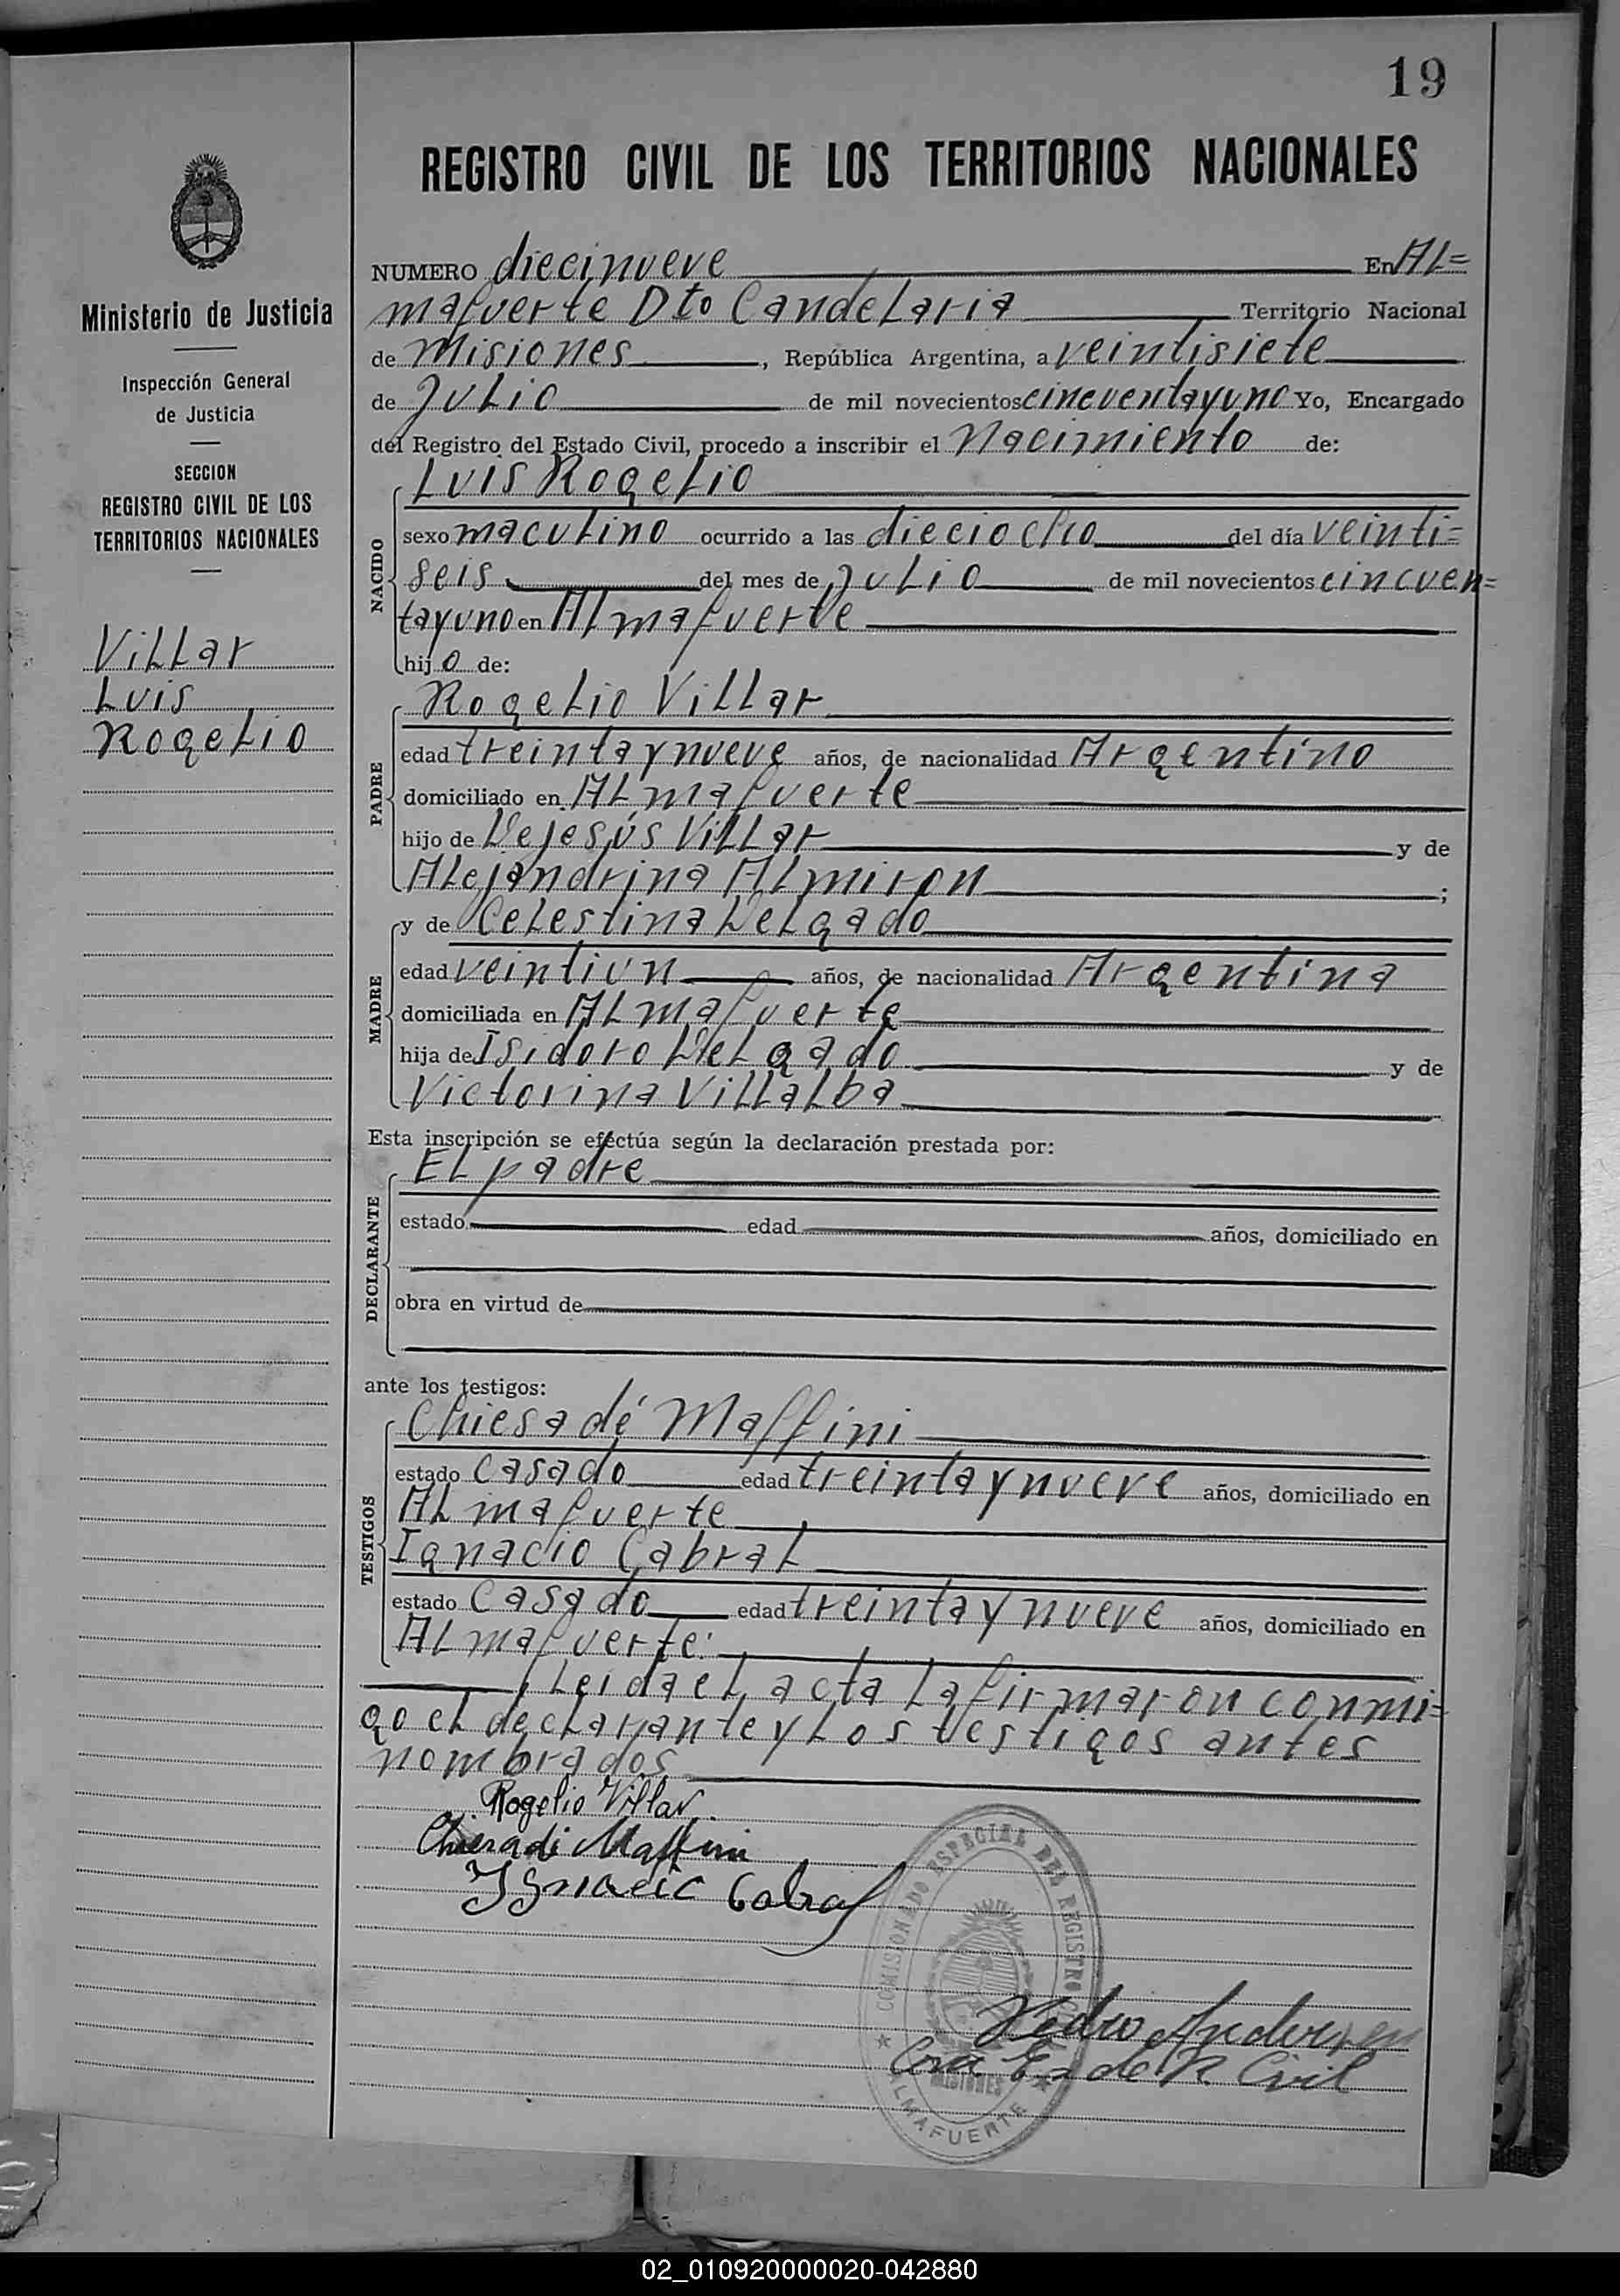 19
REGISTRO CIVIL DE LOS TERRITORIOS NACIONALES
Ministerio de Justicia
Inspección General
de Justicia
SECCION
REGISTRO CIVIL DE LOS
TERRITORIOS NACIONALES
Villar
Luis
Rogelio
NUMERO diecinueve En Al=
mafuerte Dto Candelaria Territorio Nacional
de Misiones, República Argentina, a veintisiete
de Julio de mil novecientos cincuentayuno Yo, Encargado
del Registro del Estado Civil, procedo a inscribir el Nacimiento de:
NACIDO
Luis Rogelio
sexo maculino ocurrido a las dieciocho del día veinti=
seis del mes de Julio de mil novecientos cincuen=
tayuno en Almafuerte
hijo de:
PADRE
Rogelio Villar
edad treintaynueve años, de nacionalidad Argentino
domiciliado en Almafuerte
hijo de Dejesús Villar y de
Alejandrina Almiron ;
MADRE
y de Celestina Delgado
edad veintiun años, de nacionalidad Argentina
domiciliada en Almafuerte
hija de Isidoro Delgado y de
Victorina Villalba
Esta inscripción se efectúa según la declaración prestada por:
DECLARANTE
El padre
estado edad años, domiciliado en
obra en virtud de
ante los testigos:
TESTIGOS
Chiesa dé Maffini
estado casado edad treintaynueve años, domiciliado en
Almafuerte
Ignacio Cabral
estado Casado edad treintaynueve años, domiciliado en
Almafuerte.
Leida el acta la firmaron conmi=
go el declarante y los testigos antes
nombrados
Rogelio Villar.
Chiesa di Maffini
Ignacio Cabral
COMISIONADO ESPECIAL DEL REGISTRO CIVIL
MISIONES
ALMAFUERTE
Pedro
de R. Civil
02_010920000020-042880